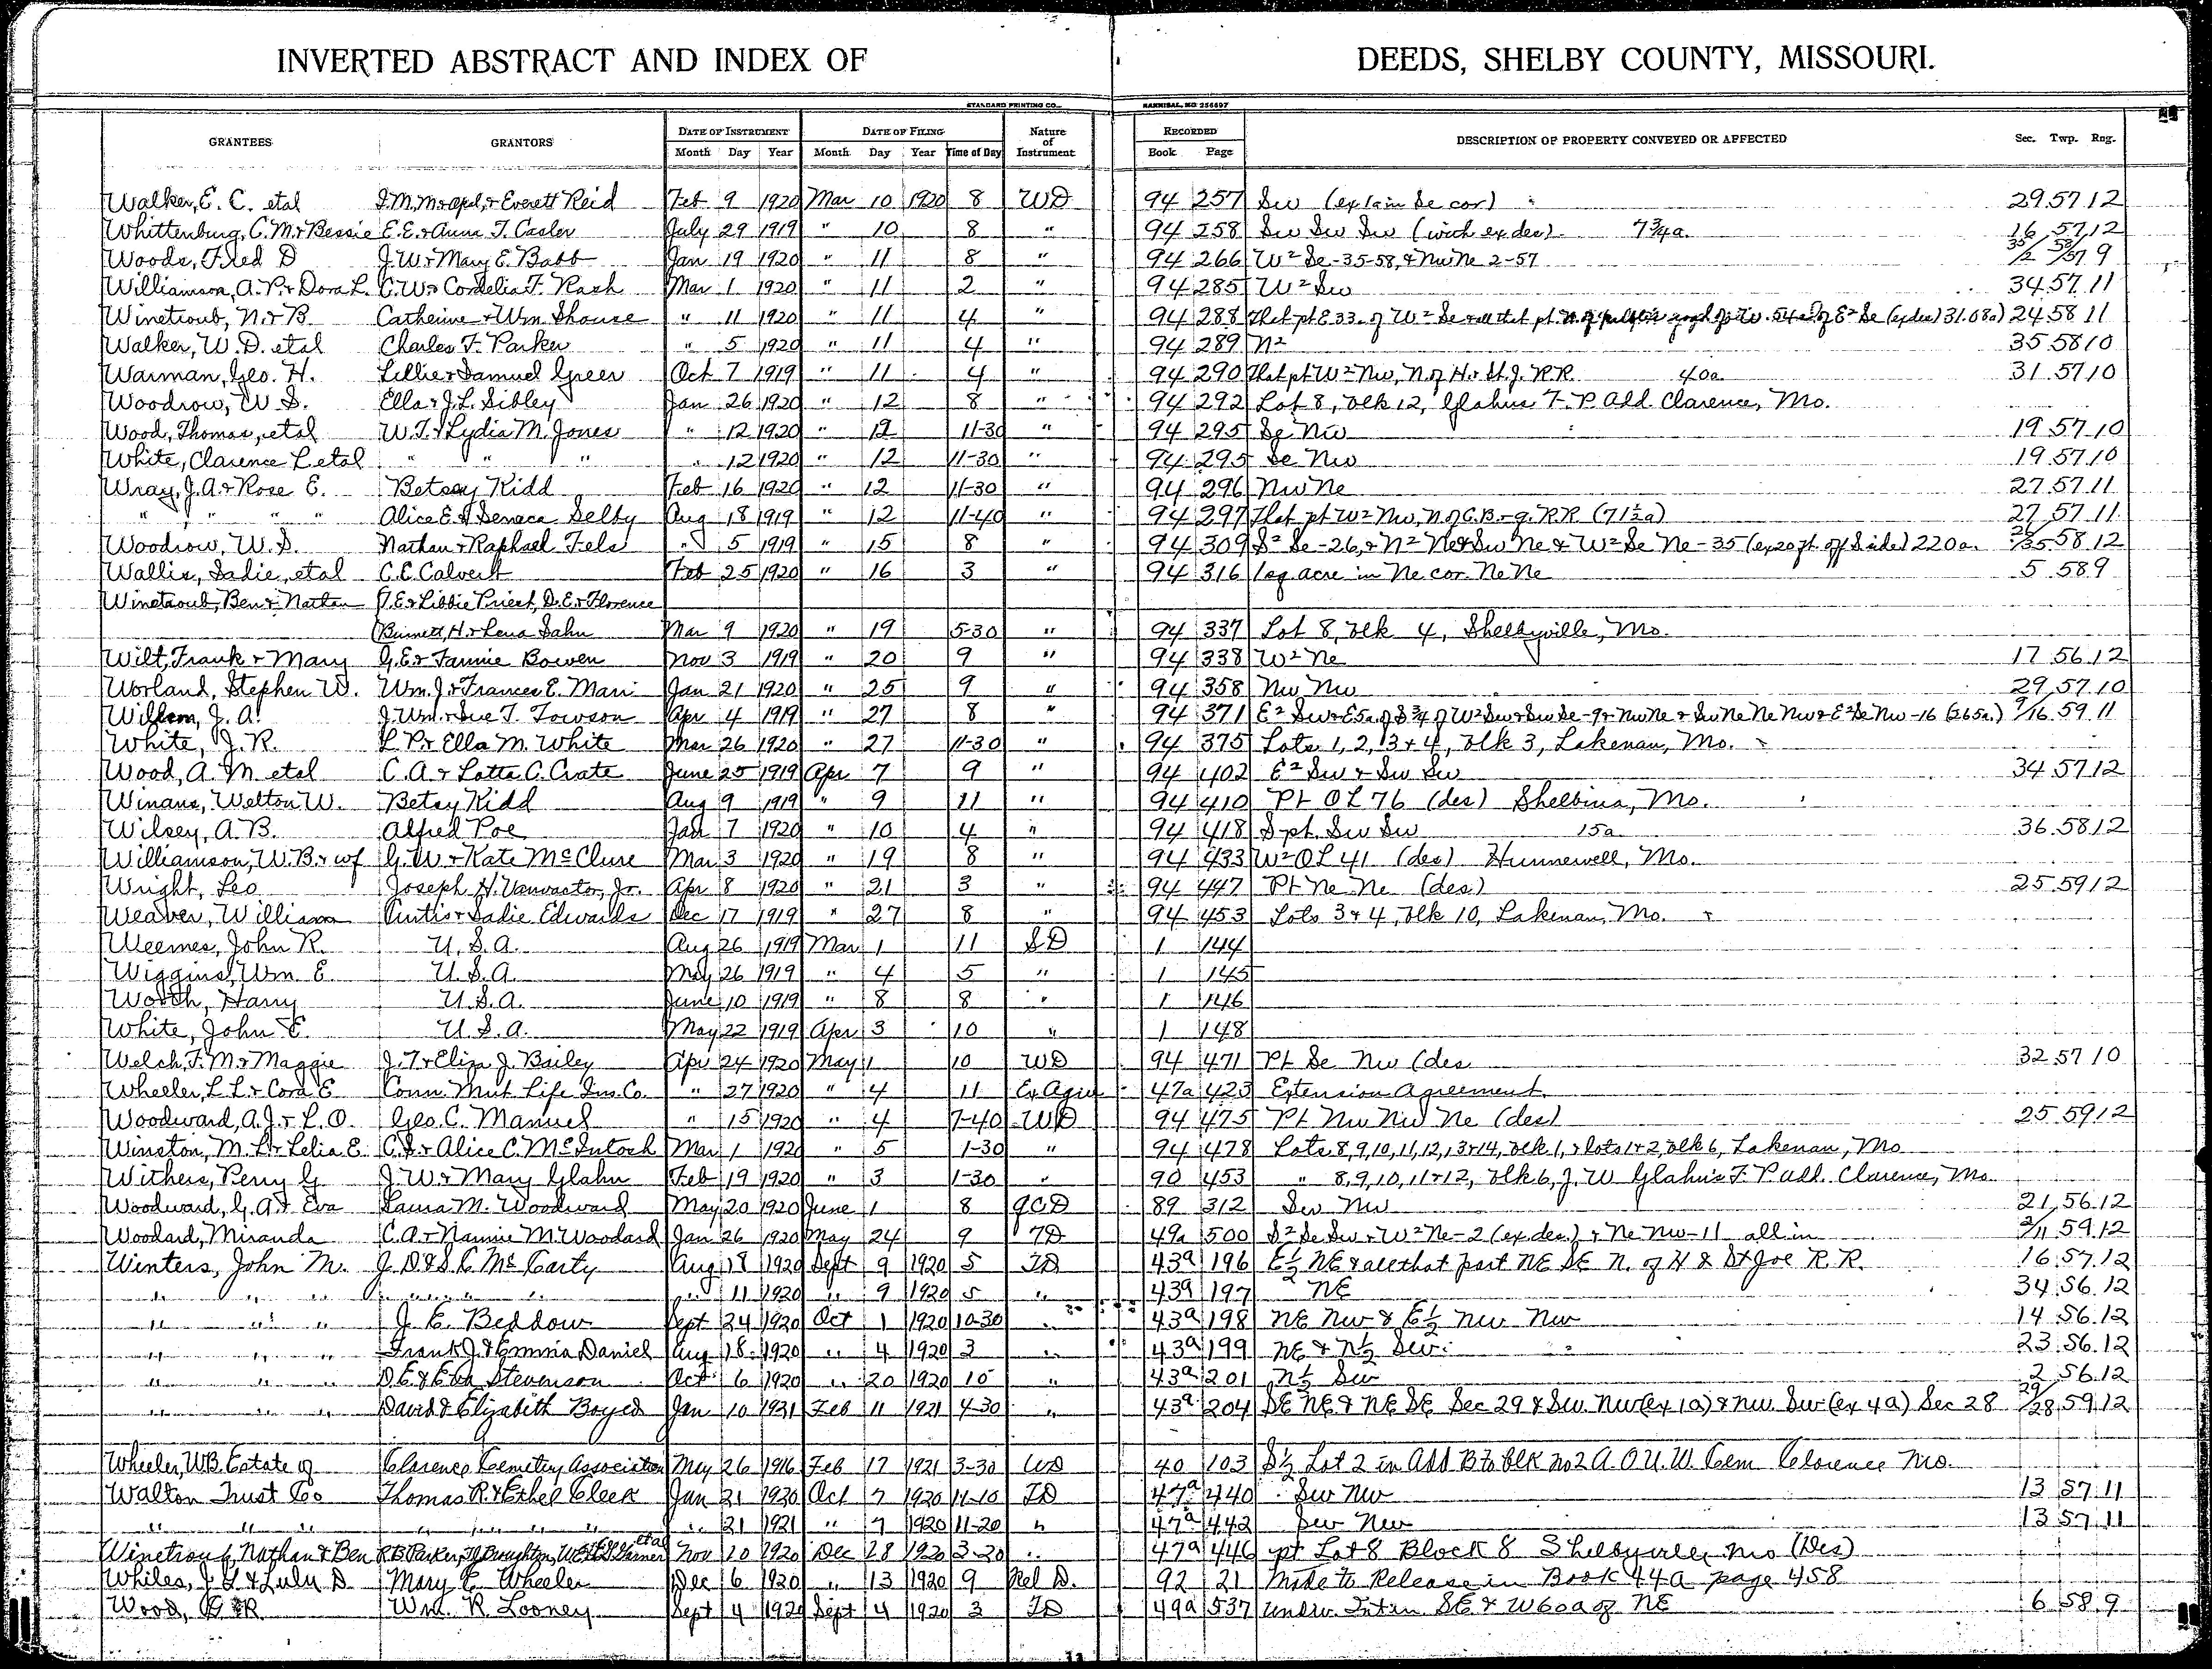 INVERTED ABSTRACT AND INDEX OF DEEDS, SHELBY COUNTY, MISSOURI.
STANDARD PRINTING CO., HANNIBAL, MO 256697
GRANTEES GRANTORS DATE OF INSTRUMENT DATE OF FILING Nature of Instrument RECORDED DESCRIPTION OF PROPERTY CONVEYED OR AFFECTED Sec. Twp. Rng.
Month Day Year Month Day Year Time of Day Book Page
Walker, E. C. etal Everett Reid Feb 9 1920 Mar 10 1920 8 WD 94 257 Sw (explain Se cor) 29 57 12
Whittenburg, C. M. & Bessie E. E. & Anna T. Casler July 29 1919 " 10 8 " 94 258 Sw Sw Sw (wich ex des) 7¾a 16 57 12
Woods, Fred D J. W. & Mary E. Babb Jan 19 1920 " 11 8 " 94 266 W² Se-35-58, & Nw Ne 2-57 35/2 58/57 9
Williamson, A. P. & Dora L. C. W. & Cordelia F. Rash Mar 1 1920 " 11 2 " 94 285 W² Sw 34 57 11
Winetroub, N. & B. Catherine & Wm. Shouse " 11 1920 " 11 4 " 94 288 That pt E 33 of W² Se & all that pt of E² Se (ex des) 31.68a) 24 58 11
Walker, W. D. etal Charles F. Parker " 5 1920 " 11 4 " 94 289 N² 35 58 10
Warman, Geo. H. Lillie & Samuel Greer Oct 7 1919 " 11 4 " 94 290 That pt W² Nw, N of H. & St. J. R.R. 40a 31 57 10
Woodrow, W. S. Ella & J. L. Sibley Jan 26 1920 " 12 8 " 94 292 Lot 8, blk 12, Glahns F. P. Add. Clarence, Mo.
Wood, Thomas, etal W. T. & Lydia M. Jones " 12 1920 " 12 11-30 " 94 295 Se Nw 19 57 10
White, Clarence L etal " " " " 12 1920 " 12 11-30 " 94 295 Se Nw 19 57 10
Wray, J. A. & Rose E. Betsey Kidd Feb 16 1920 " 12 11-30 " 94 296 Nw Ne 27 57 11
" " " " Alice E. & Seneca Selby Aug 18 1919 " 12 11-40 " 94 297 That pt W² Nw, N of C. B. & Q. R.R. (71½a) 27 57 11
Woodrow, W. S. Nathan & Raphael Fels " 5 1919 " 15 8 " 94 309 S² Se-26, & N² Ne & Sw Ne & W² Se Ne-35 (ex 20 ft. off S side) 220a. 26/35 58 12
Wallis, Sadie, etal C. E. Calvert Feb 25 1920 " 16 3 " 94 316 1 sq acre in Ne cor. Ne Ne 5 58 9
Winetroub, Ben & Nathan J. E. & Libbie Priest, D. E. & Florence
Burnett, H. & Lena Sahn Mar 9 1920 " 19 5-30 " 94 337 Lot 8, blk 4, Shelbyville, Mo.
Wilt, Frank & Mary G. E. & Fannie Bowen Nov 3 1919 " 20 9 " 94 338 W² Ne 17 56 12
Worland, Stephen W. Wm. J. & Frances E. Mari Jan 21 1920 " 25 9 " 94 358 Nw Nw 29 57 10
Willson, J. A. J. Wm. & Sue T. Towson Apr 4 1919 " 27 8 " 94 371 E² Sw & E 5a. of S ¾ of W² Sw & Sw Se-9 & Nw Ne & Sw Ne Ne Nw & E² Se Nw-16 (265a.) 9/16 59 11
White, J. R. L. P. & Ella M. White Mar 26 1920 " 27 11-30 " 94 375 Lots 1, 2, 3 & 4, blk 3, Lakenan, Mo.
Wood, A. M. etal C. A. & Lotta C. Crate June 25 1919 Apr 7 9 " 94 402 E² Sw & Sw Sw 34 57 12
Winans, Welton W. Betsy Kidd Aug 9 1919 " 9 11 " 94 410 Pt OL 76 (des) Shelbina, Mo.
Wilsey, A. B. Alfred Poe Jan 7 1920 " 10 4 " 94 418 S pt. Sw Sw 15a 36 58 12
Williamson, W. B. & wf G. W. & Kate McClure Mar 3 1920 " 19 8 " 94 433 W² OL 41 (des) Hunnewell, Mo.
Wright, Leo Joseph H. Vanvactor, Jr. Apr 8 1920 " 21 3 " 94 447 Pt Ne Ne (des) 25 59 12
Weaver, William Curtis & Sadie Edwards Dec 17 1919 " 27 8 " 94 453 Lots 3 & 4, blk 10, Lakenan, Mo.
Weemes, John R. U. S. A. Aug 26 1919 Mar 1 11 SD 1 144
Wiggins, Wm. E. U. S. A. May 26 1919 " 4 5 " 1 145
Worth, Harry U. S. A. June 10 1919 " 8 8 " 1 146
White, John E. U. S. A. May 22 1919 Apr 3 10 " 1 148
Welch, F. M. & Maggie J. T. & Eliza J. Bailey Apr 24 1920 May 1 10 WD 94 471 Pt Se Nw (des 32 57 10
Wheeler, L. L. & Cora E Conn. Mut. Life Ins. Co. " 27 1920 " 4 11 Ex Agre 47a 423 Extension Agreement
Woodward, A. J. & L. O. Geo. C. Manuel " 15 1920 " 4 7-40 WD 94 475 Pt Nw Nw Ne (des) 25 59 12
Winston, M. L. & Lelia E. C. S. & Alice C. McIntosh Mar 1 192 " 5 1-30 " 94 478 Lots 8, 9, 10, 11, 12, 13 & 14, blk 1, & lots 1 & 2, blk 6, Lakenan, Mo
Withers, Perry G. J. W. & Mary Glahn Feb 19 1920 " 3 1-30 " 90 453 " 8, 9, 10, 11 & 12, blk 6, J. W. Glahn's F. P. add. Clarence, Mo.
Woodward, G. A. & Eva Laura M. Woodward May 20 1920 June 1 8 QCD 89 312 Sw Nw 21 56 12
Woodard, Miranda C. A. & Nannie M. Woodard Jan 26 1920 May 24 9 TD 49a 500 S² Se Sw & W² Ne-2 (ex des.) & Ne Nw-11 all in 2/11 59 12
Winters, John M. J. D. & S. C. McCarty Aug 18 1920 Sept 9 1920 5 TD 43a 196 E½ NE & all that part NE SE N. of H & St Joe R. R. 16 57 12
" " " " " " " 11 1920 " 9 1920 5 " 43a 197 NE 34 56 12
" " " J. E. Beddow Sept 24 1920 Oct 1 1920 10-30 " 43a 198 NE Nw & E½ Nw Nw 14 56 12
" " " Frank J. & Emma Daniel Aug 18 1920 " 4 1920 3 " 43a 199 NE & N½ Sw 23 56 12
" " " D. E. & Eva Stevenson Oct 6 1920 " 20 1920 10 " 43a 201 N½ Sw 2 56 12
" " " David & Elizabeth Boyed Jan 10 1921 Feb 11 1921 4-30 " 43a 204 SE NE & NE SE Sec 29 & Sw. Nw (ex 1a) & Nw. Sw (ex 4a) Sec 28 29/28 59 12
Wheeler, WB. Estate of Clarence Cemetery Association May 26 1916 Feb 17 1921 3-30 WD 40 103 S½ Lot 2 in Add B to blk no 2 A. O. U. W. Cem Clarence Mo.
Walton Trust Co Thomas R. & Ethel Cleek Jan 21 1920 Oct 7 1920 11-10 TD 47a 440 Sw Nw 13 57 11
" " " " " " " " 21 1921 " 7 1920 11-20 " 47a 442 Sw Nw 13 57 11
Winetroub, Nathan & Ben R. B. Parker, Broughton, Garner etal Nov 10 1920 Dec 28 1920 3-20 " 47a 446 pt Lot 8 Block 8 Shelbyville, Mo (Des)
Whiles, J. & Lulu D. Mary E. Wheeler Dec 6 1920 " 13 1920 9 Rel D. 92 21 Mide to Release in Book 44a page 458
Wood, R Wm. R. Looney Sept 4 1920 Sept 4 1920 3 TD 49a 537 Undiv. Int in SE & W 60a of NE 6 58 9